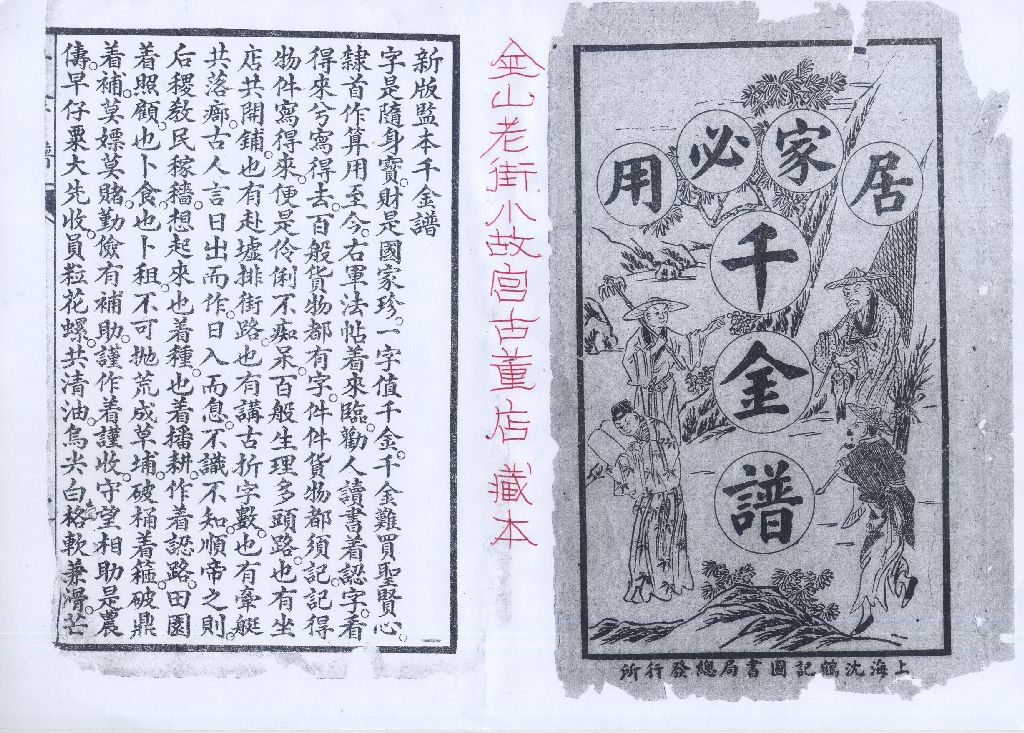 居家必用
千金譜
上海沈鶴記圖書局總發行所
金山老街小故宮古董店 藏本
新版監本千金譜
字是隨身寶。財是國家珍。一字值千金。千金難買聖賢心。
隸首作算用至今。右軍法帖着來臨。勸人讀書着認字。看
得來兮寫得去。百般貨物都有字。件件貨物都須記。記得
物件寫得來。便是伶俐不痴呆。百般生理多頭路。也有坐
店共開鋪。也有赴墟排街路。也有講古折字數。也有牽艇
共落廍。古人言日出而作。日入而息。不識不知。順帝之則。
后稷教民稼穡。想起來。也着種。也着播。耕作着認路。田園
着照顧。也卜食。也卜租。不可拋荒成草埔。破桶着箍。破鼎
着補。莫嫖莫賭。勤儉有補助。謹作着謹收。守望相助是農
儔。早仔粟。大先收。員粒花螺共清油。烏尖白格軟兼滑。芒